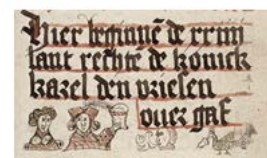 Hier beginnē de xxiiii
lant rechte de konick
karel den vriesen
ouer gaf